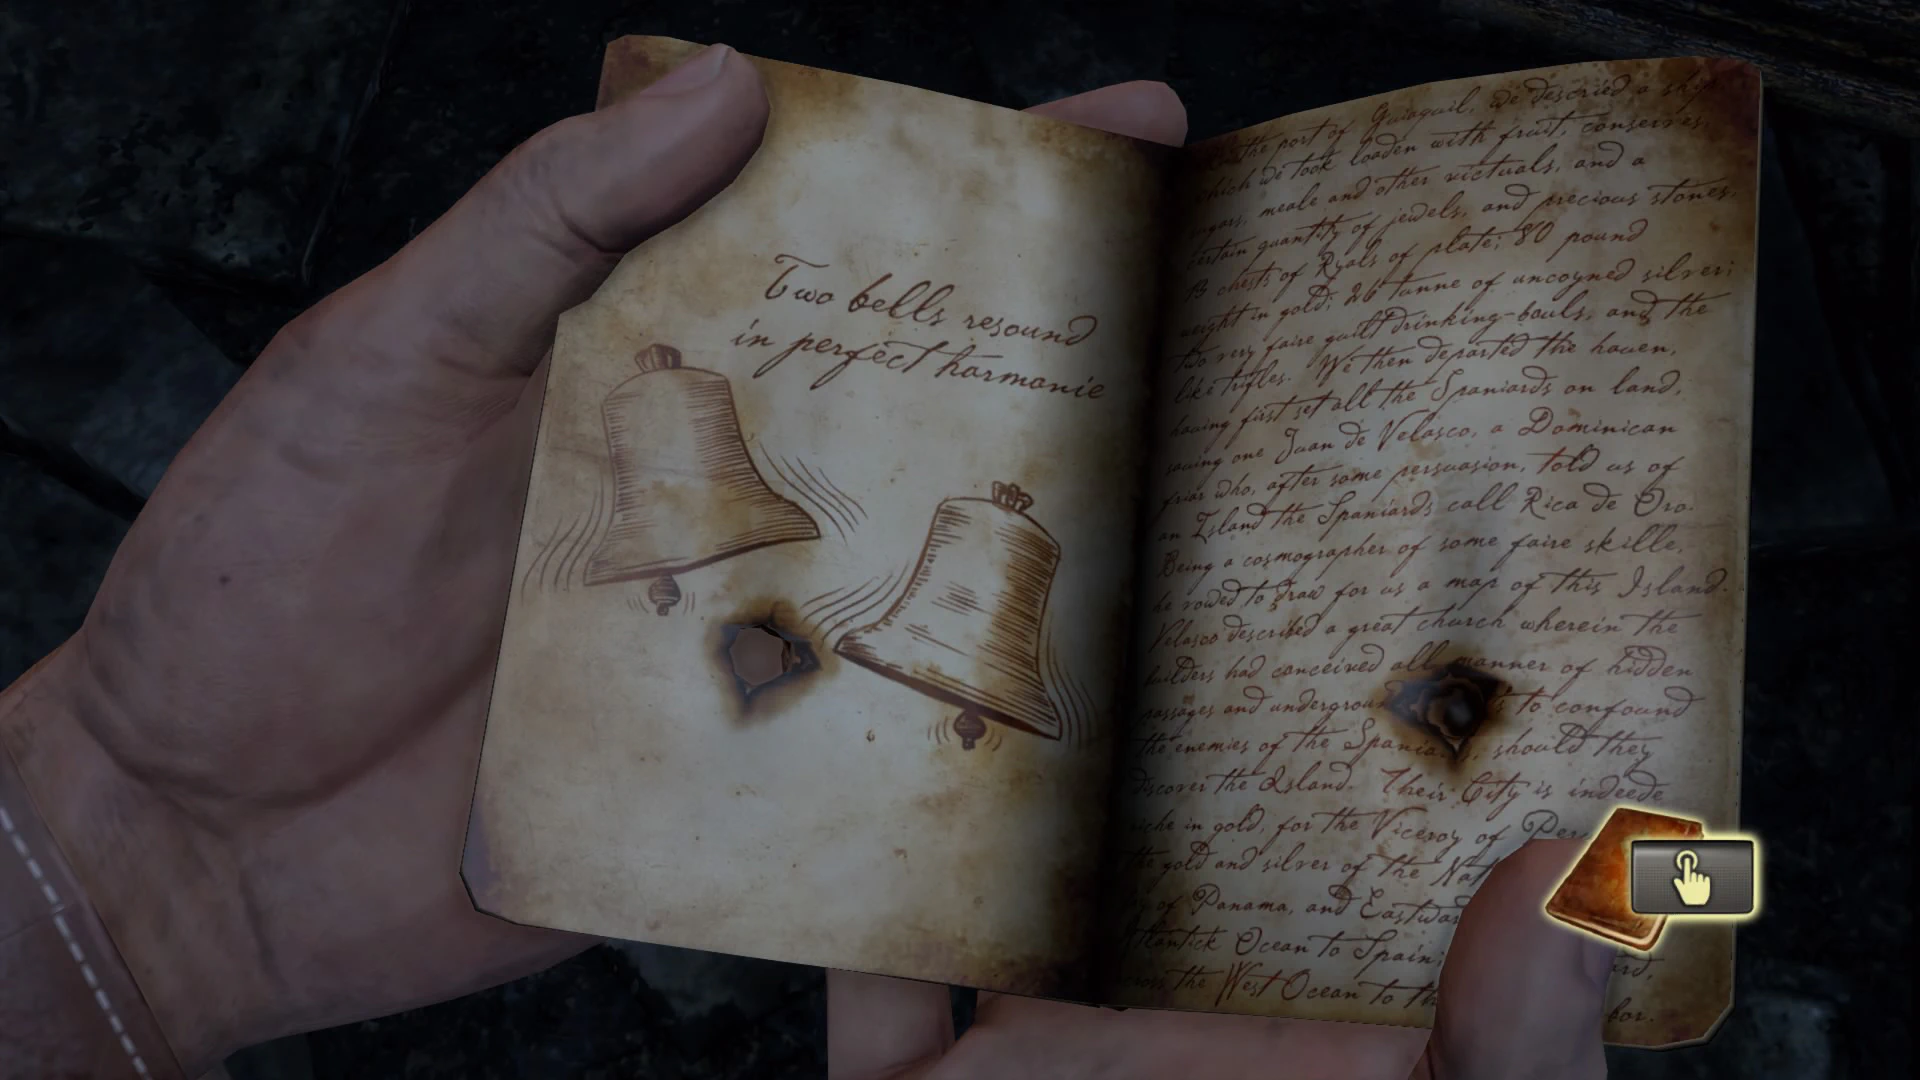 Two bells resound
in perfect harmonie
the port of Guiaquil, we descried a ship
which we took loaden with fruit, conserves,
sugars, meale and other victuals, and a
certain quantity of jewels, and precious stones,
13 chests of Ryals of plate; 80 pound
weight in gold; 26 tunne of uncoyned silver;
two very faire guilt drinking-bouls, and the
like trifles. We then departed the haven,
having first set all the Spaniards on land,
saving one Juan de Velasco, a Dominican
friar who, after some persuasion, told us of
an Island the Spaniards call Rica de Oro.
Being a cosmographer of some faire skille,
he vowed to draw for us a map of this Island.
Velasco described a great church wherein the
builders had conceived all manner of hidden
passages and undergroun to confound
the enemies of the Spania, should they
discover the Island. Their City is indeede
riche in gold, for the Viceroy of Per
the gold and silver of the Nat
of Panama, and Eastwar
Atlantick Ocean to Spain;
across the West Ocean to th